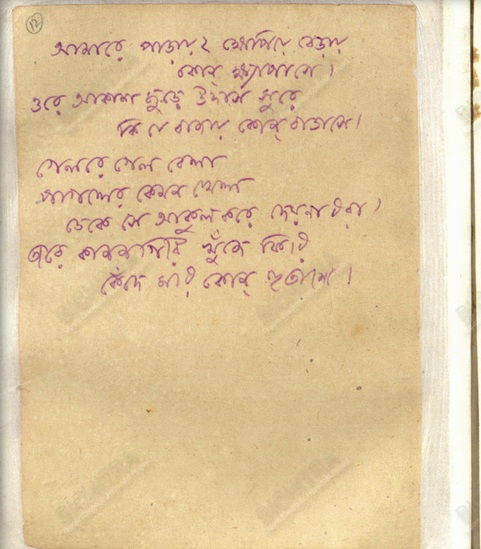 12
আমারে পাড়ায় ২ খেপিয়ে বেড়ায়
কোন্ ক্ষ্যাপা সে।
ওরে আকাশ জুড়ে উদাস সুরে
কি যে বাজায় কোন্ বাতাসে।
গেলরে গেল বেলা
পাগলের কেমন খেলা
ডেকে সে আকুল করে দেয়না ধরা।
তারে কানন গিরি খুঁজে ফিরি
কেঁদে মরি কোন্ হুতাশে।
BICHITRA